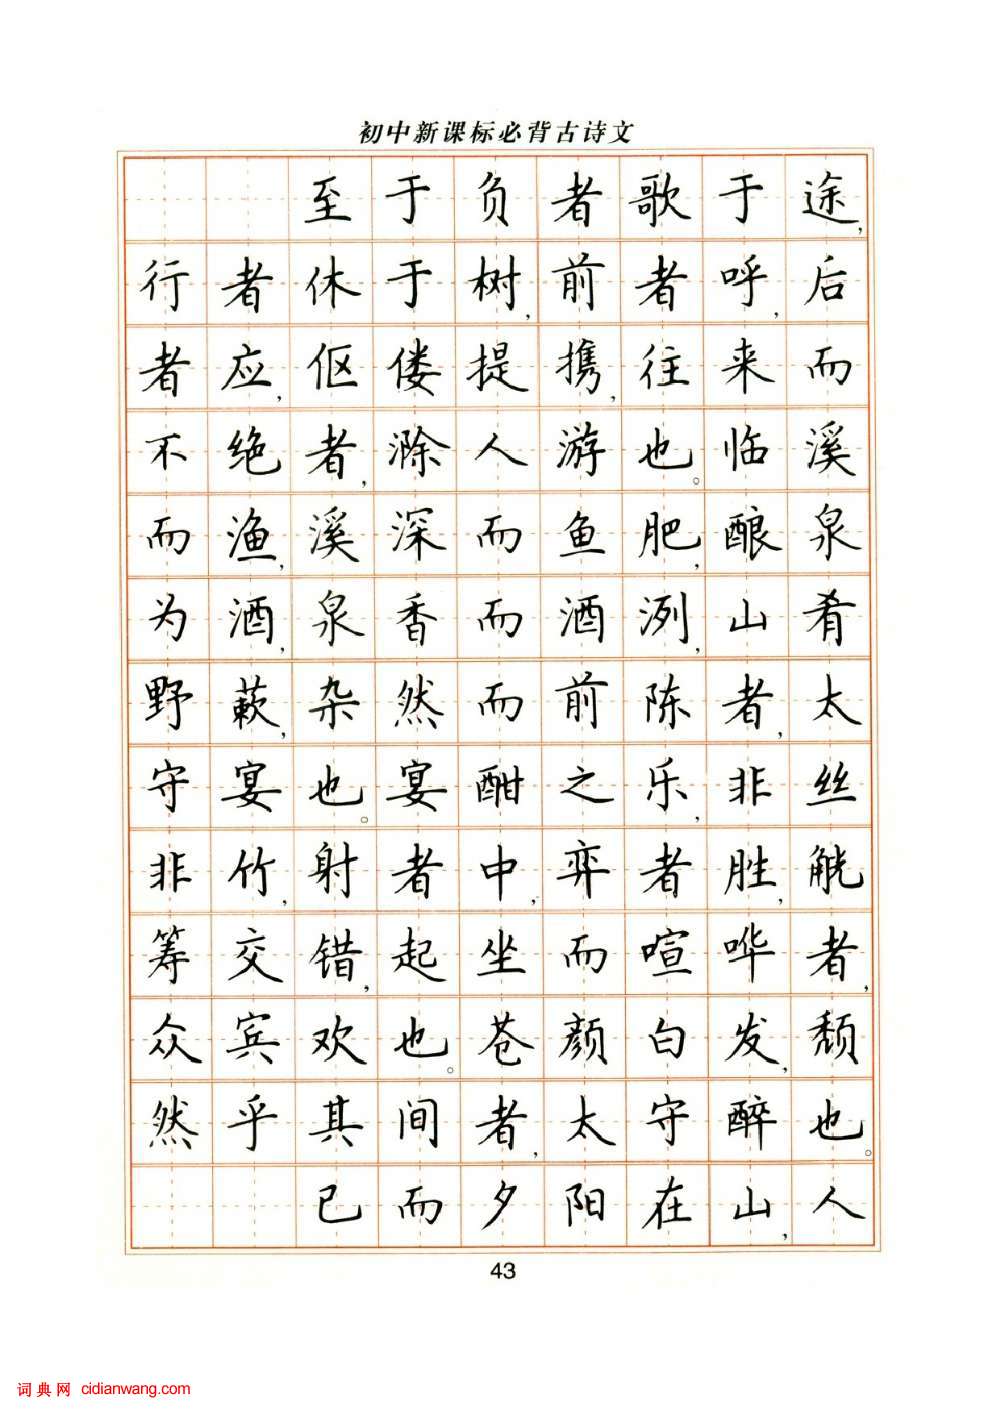 初中新课标必背古诗文
至于负者歌于途,
行者休于树,前者呼,后
者应,伛偻提携,往来而
不绝者,滁人游也。临溪
而渔,溪深而鱼肥,酿泉
为酒,泉香而酒洌,山肴
野蔌,杂然而前陈者,太
守宴也。宴酣之乐,非丝
非竹,射者中,弈者胜,觥
筹交错,起坐而喧哗者,
众宾欢也。苍颜白发,颓
然乎其间者,太守醉也。
已而夕阳在山,人
43
词典网 cidianwang.com